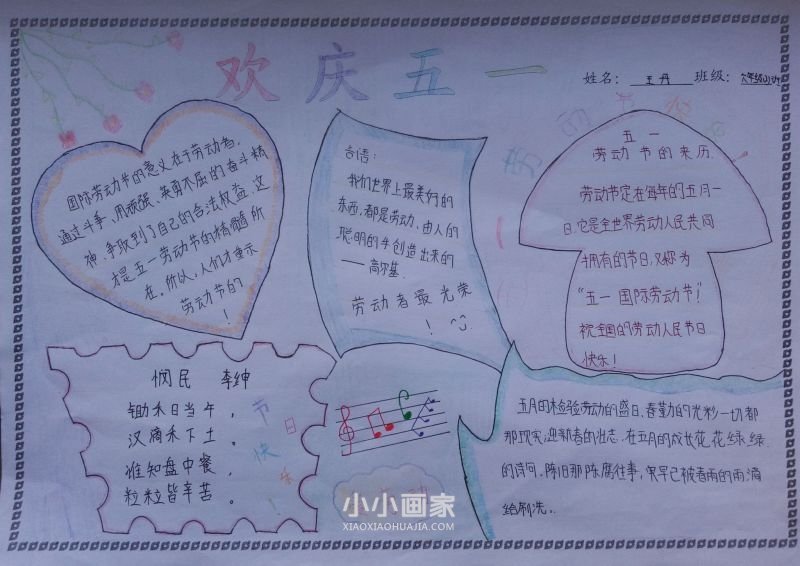 欢庆五一
姓名：王丹 班级：
国际劳动节的意义在于劳动者,
通过斗争、用顽强、英勇不屈的奋斗精
神、争取到了自己的合法权益。这
才是五一劳动节的精髓所
在。所以,人们才重示
劳动节的
!
言语：
我们世界上最美好的
东西,都是劳动、由人的
聪明的手创造出来的
——高尔基.
劳动者最光荣
!
五一
劳动节的来历.
劳动节定在每年的五月一
日,它是全世界劳动人民共同
拥有的节日,又称为
“五一国际劳动节”!
祝全国的劳动人民节日
快乐!
悯民 李绅
锄禾日当午,
汉滴禾下土。
谁知盘中餐,
粒粒皆辛苦。
节
日
快
乐
!
五月的检验劳动的盛日、春勤的光彩一切都
那现实,迎新者的壮志.在五月的成长花花绿绿
的诗句.陈旧那陈腐往事,早已被春雨的雨滴
给刷洗.
小小画家
XIAOXIAOHUAJIA.COM